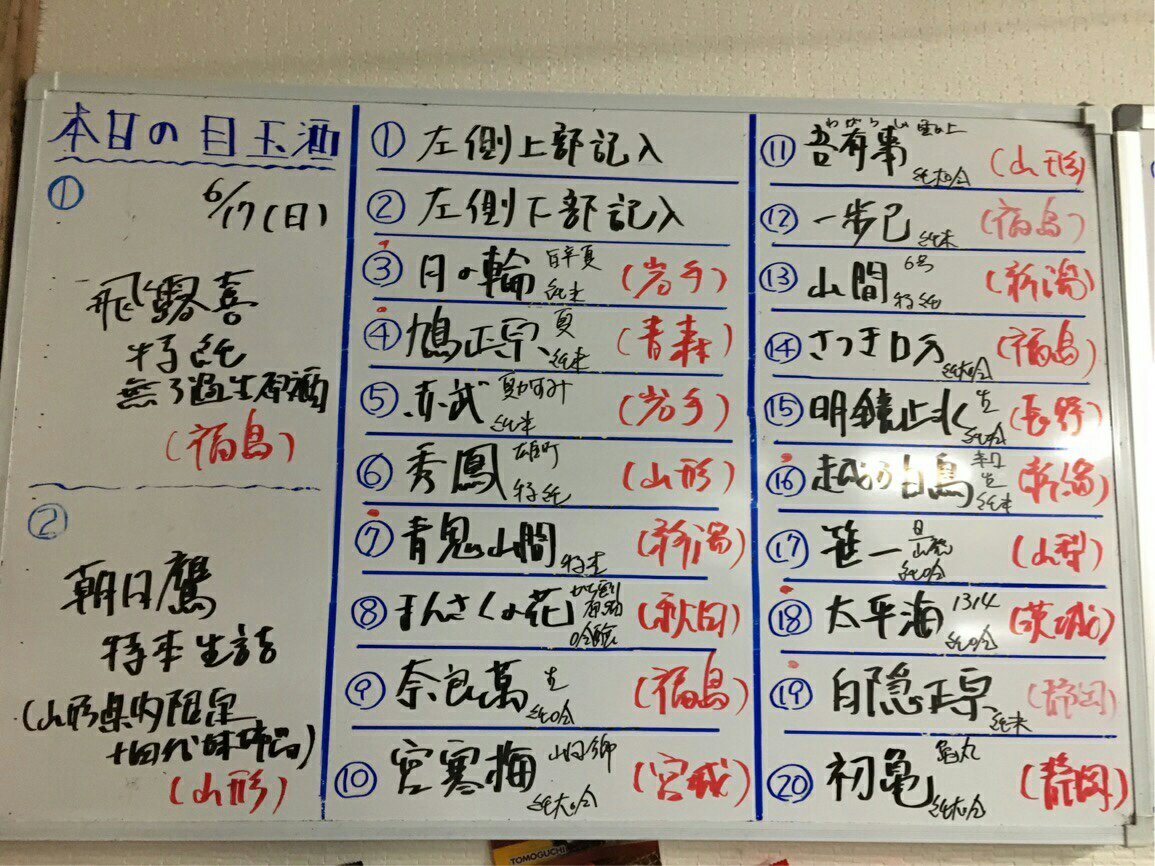 本日の目玉酒
①
6/17(日)
飛露喜
特純
無ろ過生原酒
(福島)
②
朝日鷹
特本生詰
(山形県内限定
十四代姉妹品)
(山形)
① 左側上部記入
② 左側下部記入
③ 月の輪 夏 純米 (岩手)
④ 鳩正宗 夏 純米 (青森)
⑤ 赤武 夏かすみ 純米 (岩手)
⑥ 秀鳳 雄町 特純 (山形)
⑦ 青鬼山間 特本 (新潟)
⑧ まんさくの花 吟醸 (秋田)
⑨ 奈良萬 生 純吟 (福島)
⑩ 宮寒梅 山田郷 純大吟 (宮城)
⑪ 吾有事 わがうじ 雲の上 純大吟 (山形)
⑫ 一歩己 純米 (福島)
⑬ 山間 6号 特純 (新潟)
⑭ さつき 純大吟 (福島)
⑮ 明鏡止水 生 純吟 (長野)
⑯ 越の白鳥 辛口 生 純米 (新潟)
⑰ 笹一 純吟 (山梨)
⑱ 太平海 1314 純吟 (茨城)
⑲ 白隠正宗 純米 (静岡)
⑳ 初亀 亀丸 純大吟 (静岡)
TOMOGUCHI